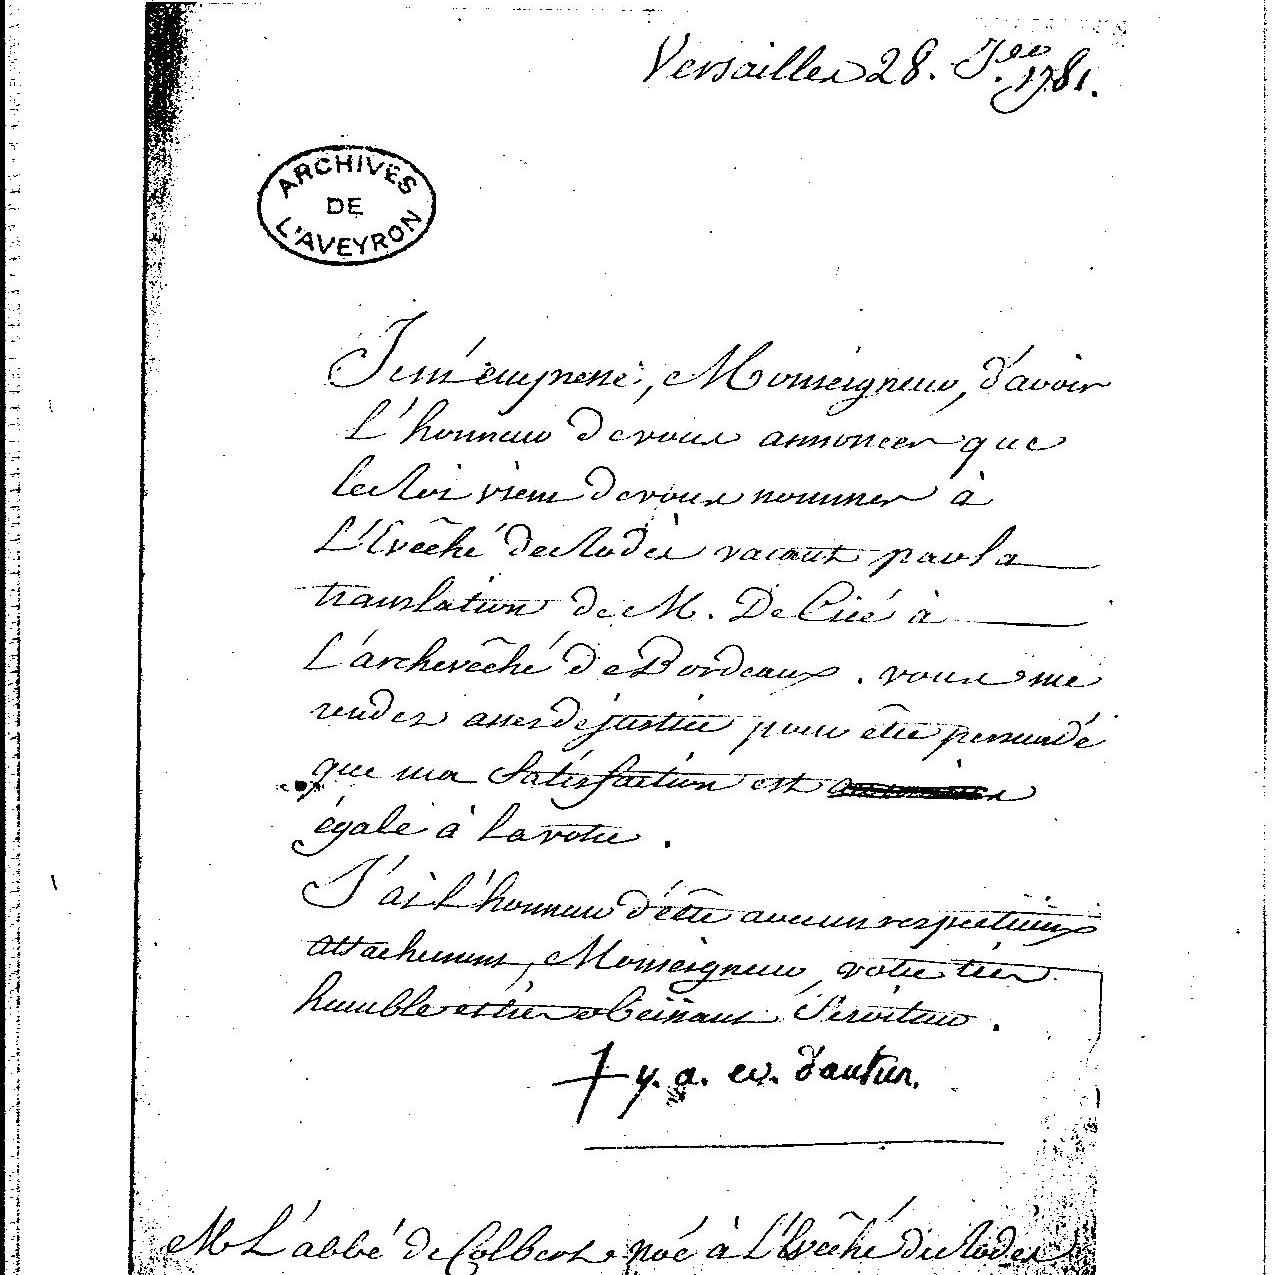 Versailles 28. Jer 1781.
ARCHIVES
DE
L'AVEYRON
Je m'empresse, Monseigneur, d'avoir
L'honneur de vous annoncer que
le Roi vient de vous nommer à
L'Evêché de Rodès vacant par la
translation de M. De Cicé à
L'archevêché de Bordeaux. vous me
rendés assés de justice pour être persuadé
que ma Satisfaction est
égale à la votre.
J'ai l'honneur d'être avec un respectueux
attachement, Monseigneur, votre très
humble et très obeissant Serviteur.
† y. a. ev. d'autun.
M L'abbé de Colbert né à l'Evêché de Rodès